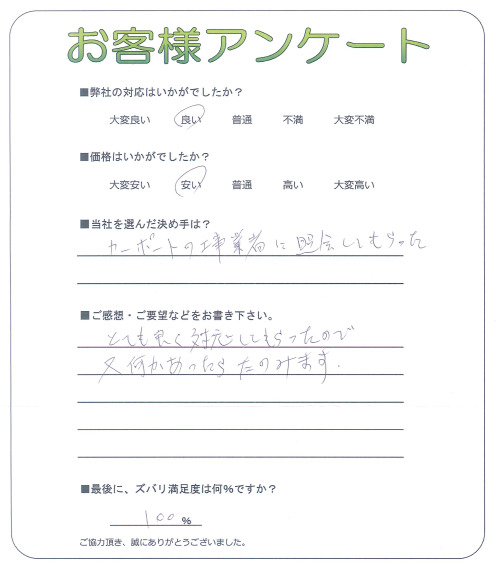 お客様アンケート
■弊社の対応はいかがでしたか？
大変良い 良い 普通 不満 大変不満
■価格はいかがでしたか？
大変安い 安い 普通 高い 大変高い
■当社を選んだ決め手は？
カーポートの工事業者に照会してもらった
■ご感想・ご要望などをお書き下さい。
とても良く対応してもらったので
又何かあったらたのみます.
■最後に、ズバリ満足度は何%ですか？
100 %
ご協力頂き、誠にありがとうございました。